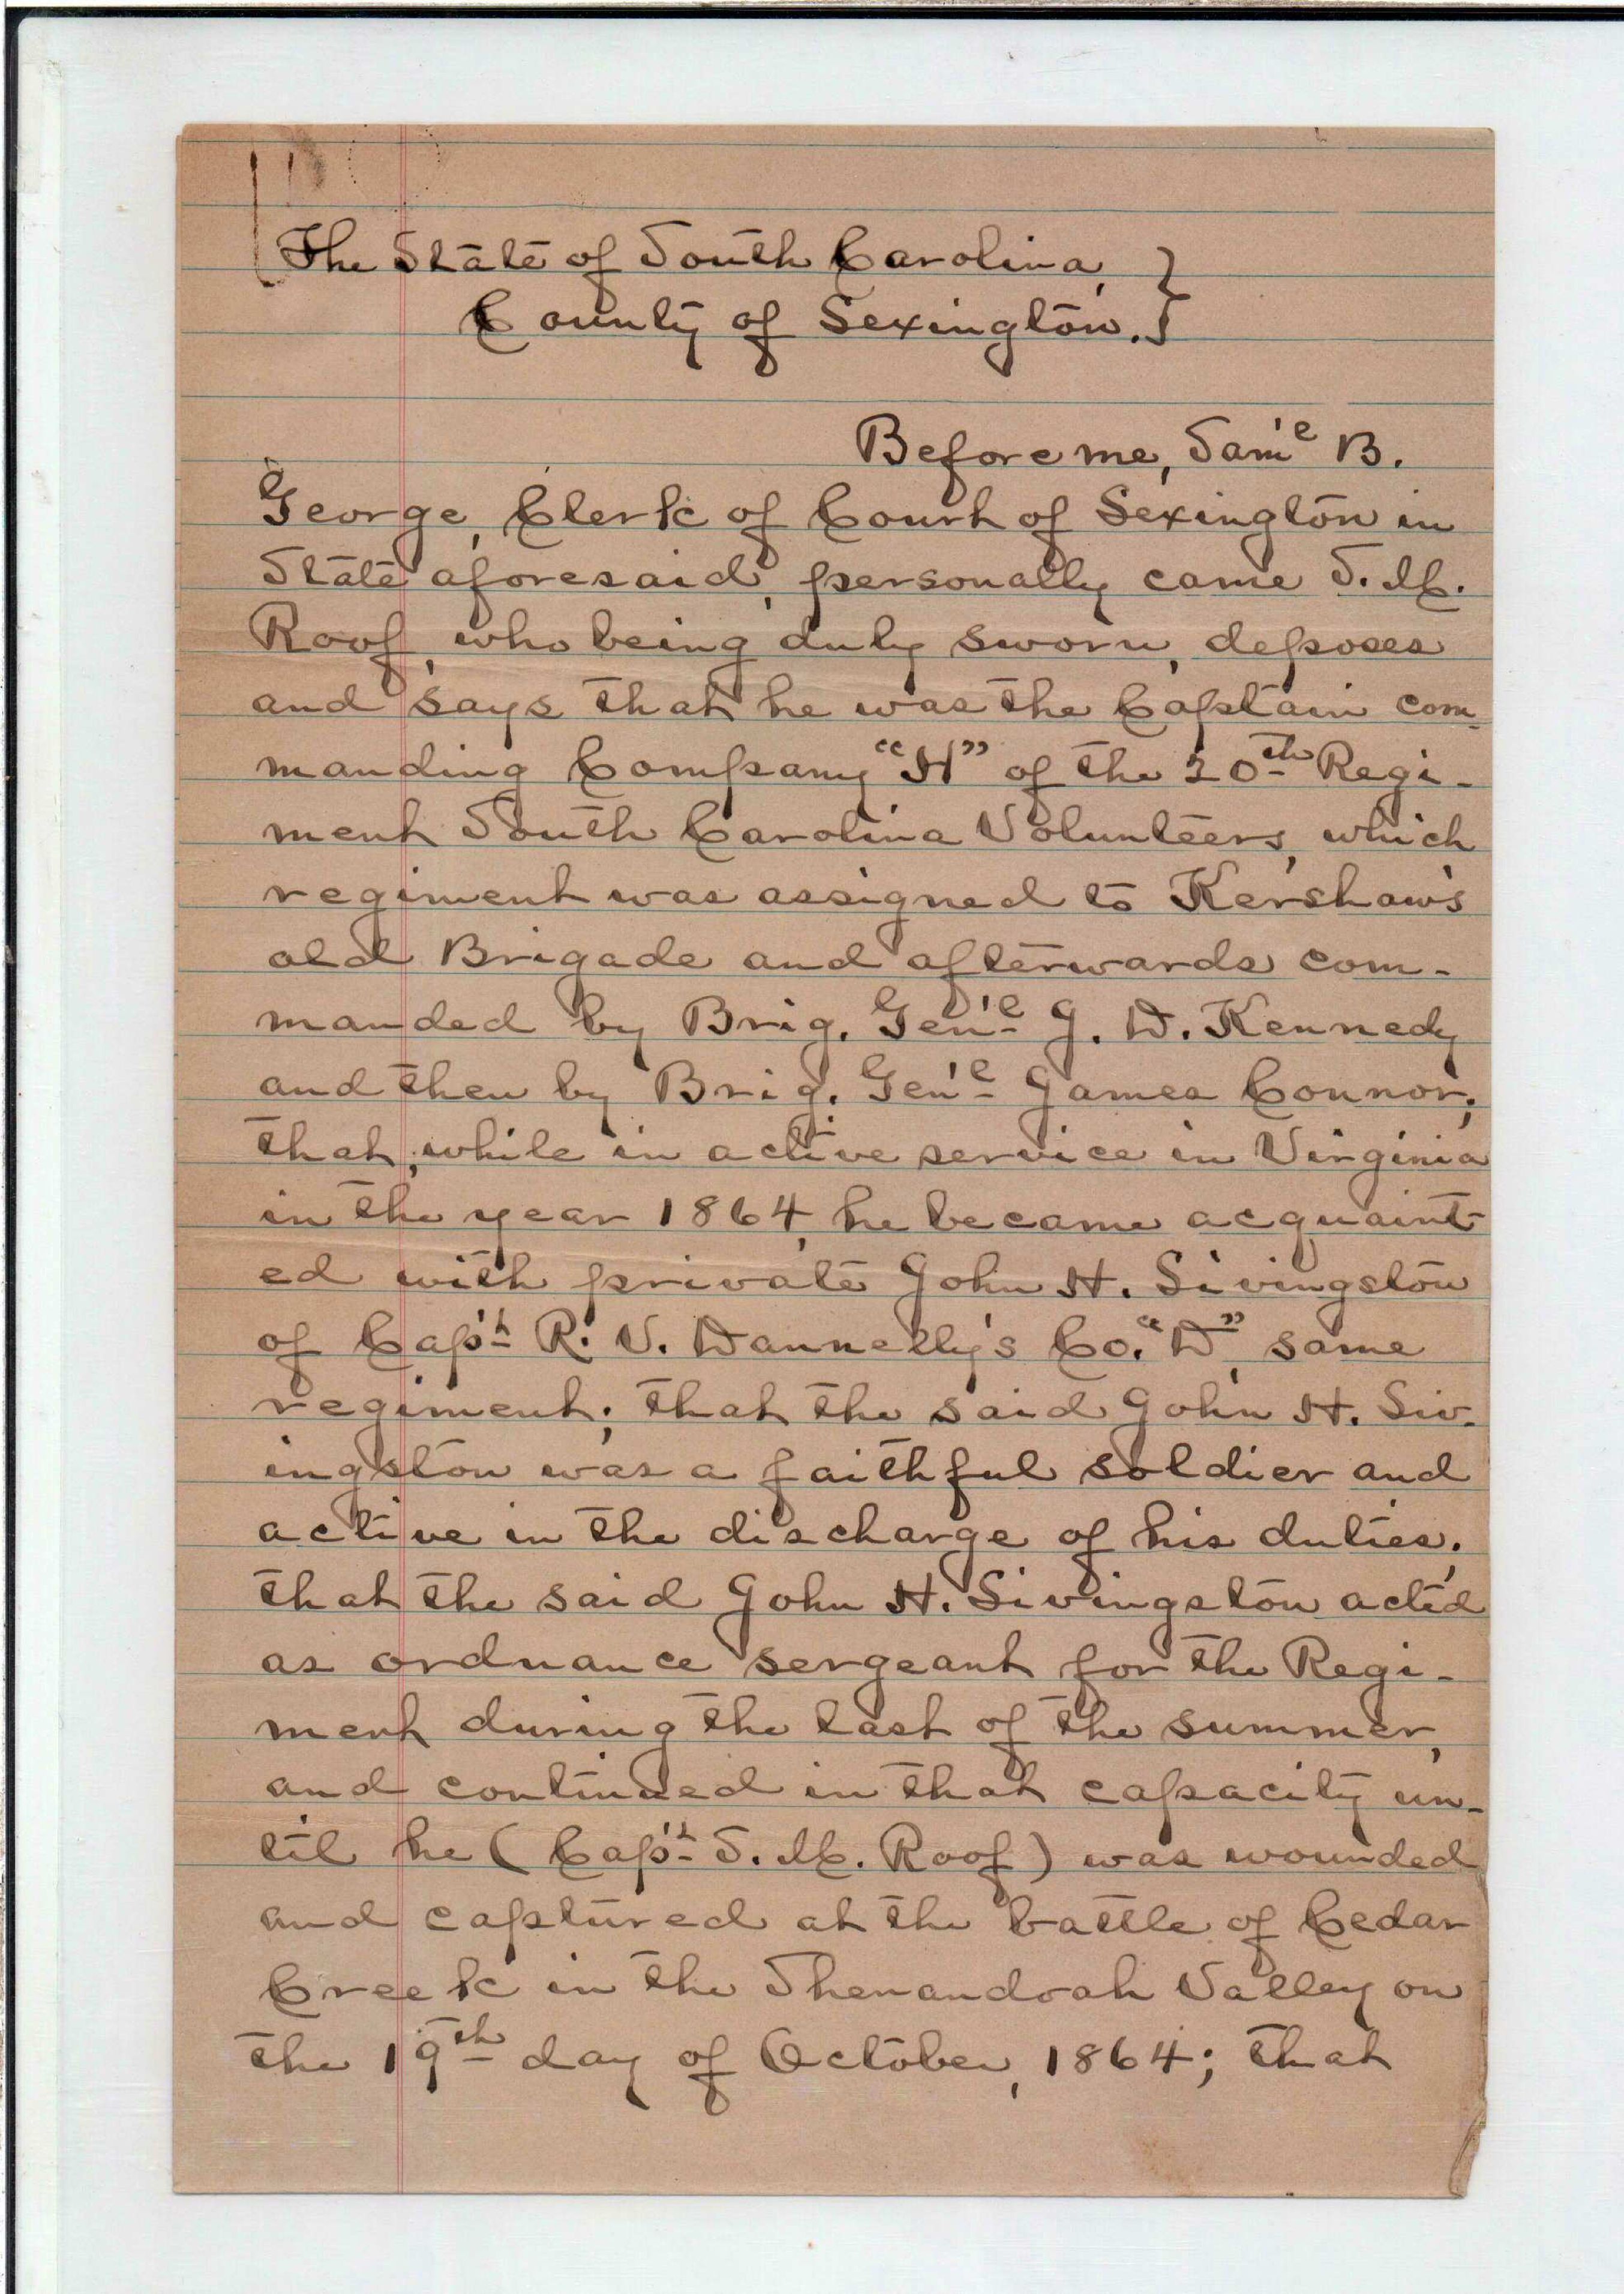 The State of South Carolina, }
County of Lexington. }
Before me, Sam'l B.
George, Clerk of Court of Lexington in
State aforesaid, personally came S. M.
Roof, who being duly sworn, deposes
and says that he was the Captain com-
manding Company "H" of the 20th Regi-
ment South Carolina Volunteers, which
regiment was assigned to Kershaw's
old Brigade and afterwards com-
manded by Brig. Gen'l J. D. Kennedy
and then by Brig. Gen'l James Connor;
that, while in active service in Virginia
in the year 1864, he became acquaint-
ed with private John H. Livingston
of Cap't R. V. Dannelly's Co. "D", same
regiment; that the said John H. Liv-
ingston was a faithful soldier and
active in the discharge of his duties;
that the said John H. Livingston acted
as ordnance sergeant for the Regi-
ment during the last of the summer,
and continued in that capacity un-
til he (Cap't S. M. Roof) was wounded
and captured at the battle of Cedar
Creek in the Shenandoah Valley on
the 19th day of October, 1864; that